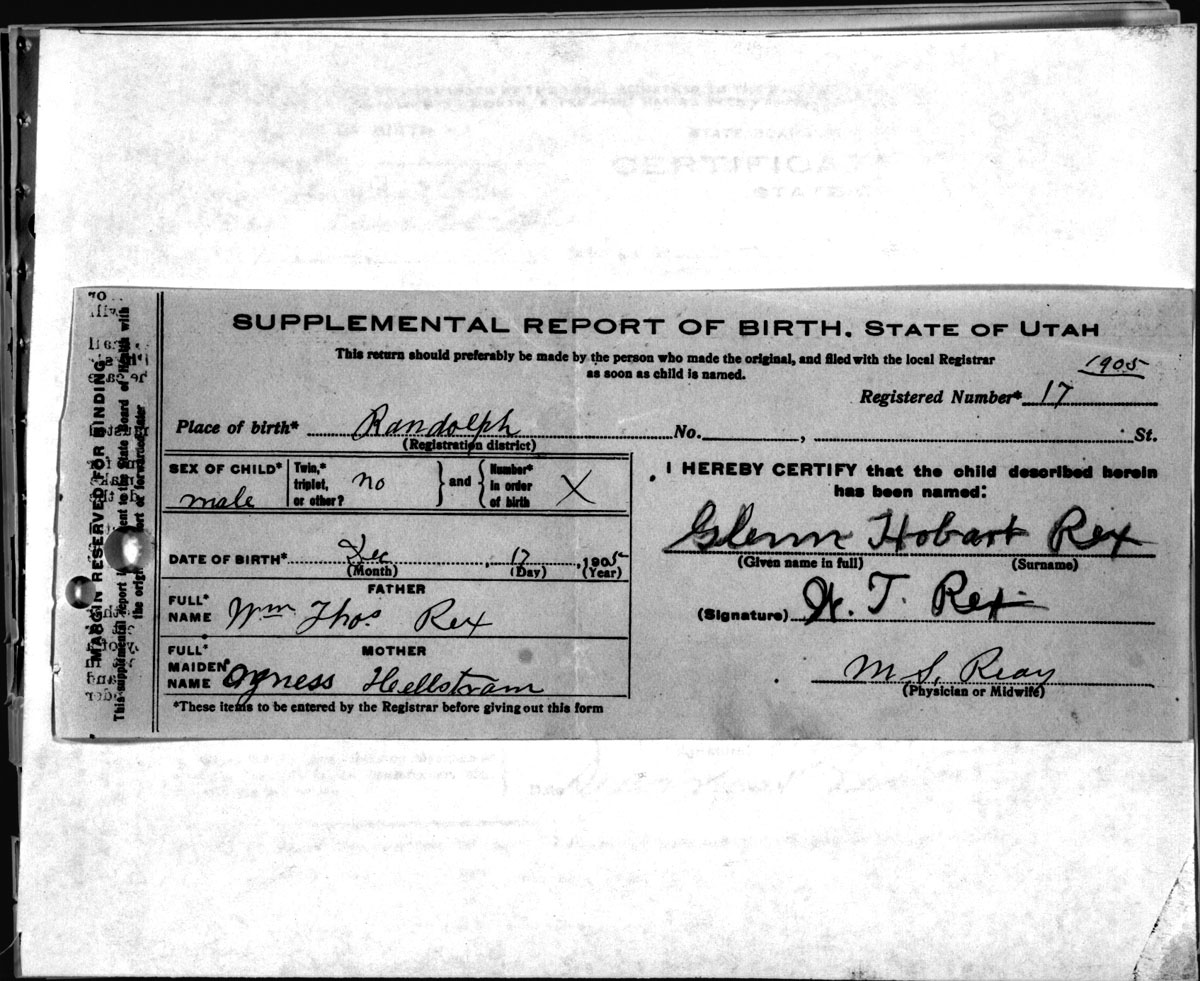 SUPPLEMENTAL REPORT OF BIRTH. STATE OF UTAH
This return should preferably be made by the person who made the original, and filed with the local Registrar
as soon as child is named.
1905
Registered Number* 17
Place of birth* Randolph No. , St.
(Registration district)
SEX OF CHILD* male
Twin,* triplet, or other? no
and
Number* in order of birth X
DATE OF BIRTH* Dec , 17 , 1905
(Month) (Day) (Year)
FATHER
FULL* NAME Wm Thos. Rex
MOTHER
FULL* MAIDEN NAME Agness Hellstram
*These items to be entered by the Registrar before giving out this form
I HEREBY CERTIFY that the child described herein
has been named:
Glenn Hobart Rex
(Given name in full) (Surname)
(Signature) W. T. Rex
M. S. Reay
(Physician or Midwife)
MARGIN RESERVED FOR BINDING
This supplemental report ent to the State Board of Health with
the orig ort or forwarded later